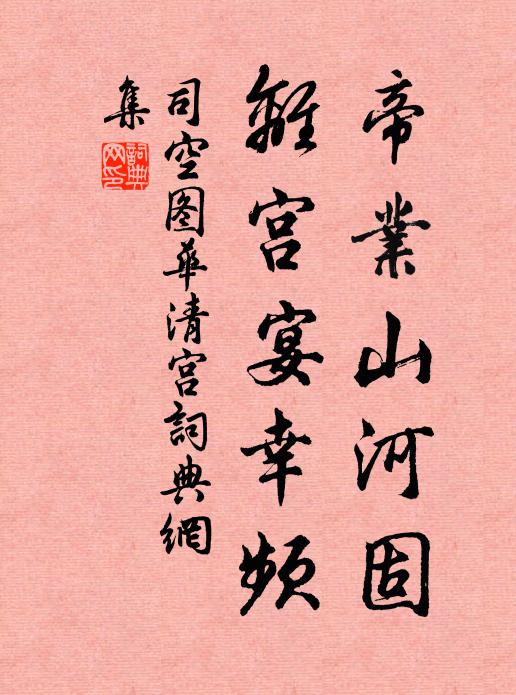 帝業山河固
離宮宴幸頻
司空图華清宮詞典網
集
詞典網印